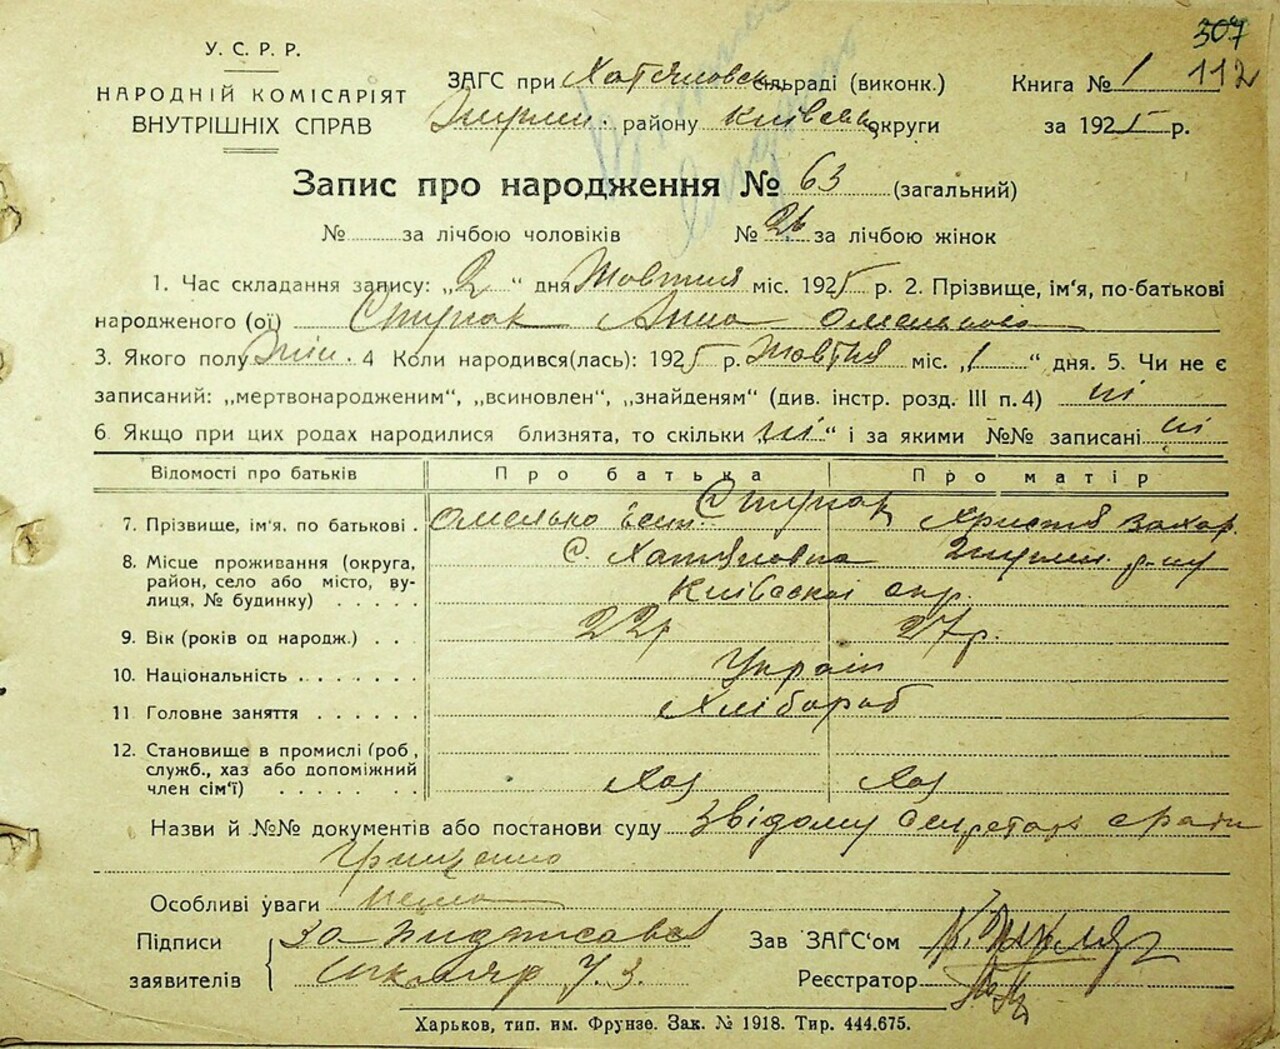 307
112
У. С. Р. Р.
НАРОДНІЙ КОМІСАРІЯТ
ВНУТРІШНІХ СПРАВ
ЗАГС при Хатяловськ сільраді (виконк.) Книга № 1
району Київськ округи за 1925 р.
Запис про народження № 63 (загальний)
№ за лічбою чоловіків № 26 за лічбою жінок
1. Час складання запису: „2“ дня Жовтня міс. 1925 р. 2. Прізвище, ім‘я, по-батькові
народженого (ої) Ступак Анна Омельянова
3. Якого полу жін. 4 Коли народився(лась): 1925 р. Жовтня міс. „1“ дня. 5. Чи не є
записаний: „мертвонародженим“, „всиновлен“, „знайденям“ (див. інстр. розд. III п. 4) ні
6 Якщо при цих родах народилися близнята, то скільки „ні“ і за якими №№ записані ні
Відомості про батьків Про батька Про матір
7. Прізвище, ім‘я, по батькові . Омелько Ступак Христя Захар.
8. Місце проживання (округа, с. Хатяловка р-ну
район, село або місто, ву-
лиця, № будинку) . . . . . Київської окр.
9. Вік (років од народж.) . . 22р 27р.
10. Національність . . . . . . . Україн
11 Головне заняття . . . . . . Хлібороб
12. Становище в промислі (роб,
служб., хаз або допоміжний
член сім‘ї) . . . . . . . Хаз Хаз
Назви й №№ документів або постанови суду З відому секретаря сради
Грищенко
Особливі уваги нема
Підписи За Зав ЗАГС‘ом
заявителів Шкляр У. З. Реєстратор
Харьков, тип. им. Фрунзе. Зак. № 1918. Тир. 444.675.